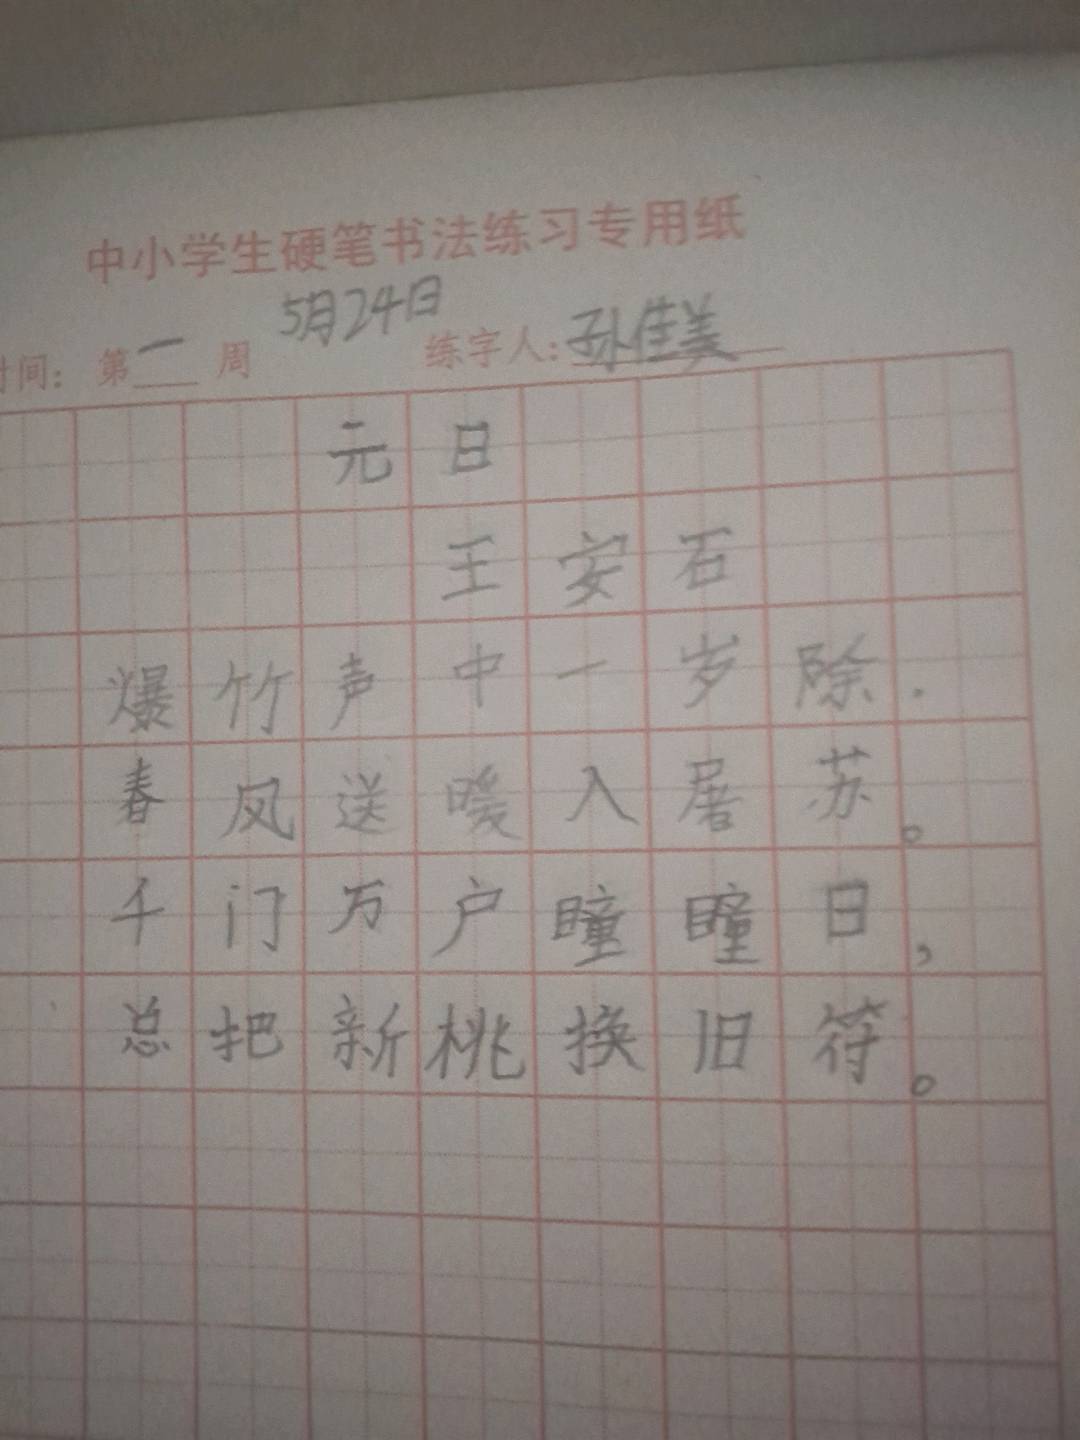 中小学生硬笔书法练习专用纸
5月24日
时间：第一周 练字人：孙佳美
元日
王安石
爆竹声中一岁除.
春风送暖入屠苏。
千门万户瞳瞳日，
总把新桃换旧符。